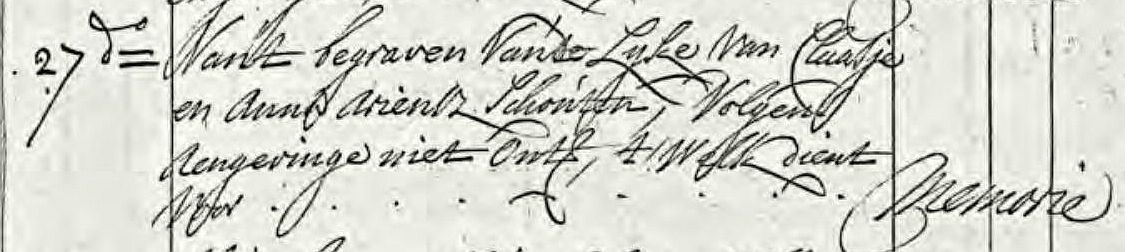 27 do= Vant begraven Vande Lyke Van Claasje
en Annes Arientz Schouten, Volgens
Aengevinge niet Ontf, 't Welk dient
Voor . . . . . . . . . Memorie